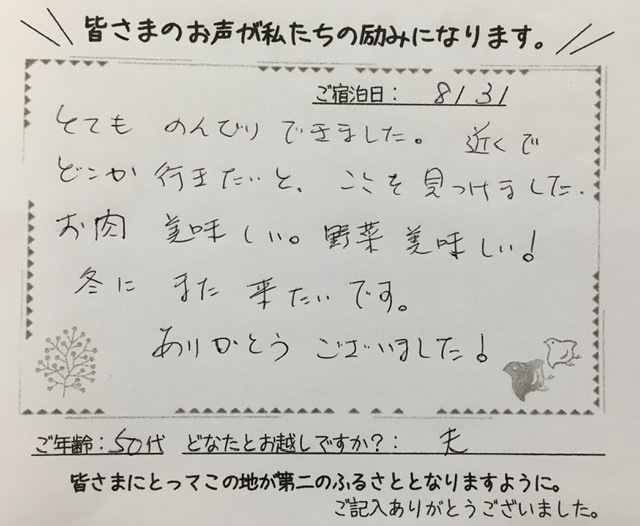 皆さまのお声が私たちの励みになります。
ご宿泊日: 8/31
とても のんびり できました。 近くで
どこか 行きたいと、ここを見つけました.
お肉 美味しい。野菜 美味しい!
冬に また 来たいです。
ありがとう ございました!
ご年齢:50代 どなたとお越しですか?: 夫
皆さまにとってこの地が第二のふるさととなりますように。
ご記入ありがとうございました。